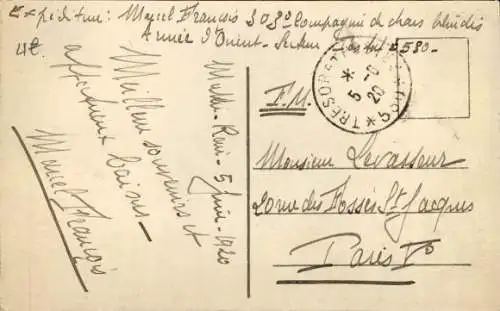 Expéditeur: Marcel François 303e Compagnie de chars blindés
Armée d'Orient - Secteur Postal 580 -
Meilleurs souvenirs et
affectueux baisers -
Marcel François
5 Juin - 1920
F.M.
TRESOR ET POSTES * 580 *
5 - 6
20
Monsieur Levasseur
20 rue des Fossés St Jacques
Paris Ve